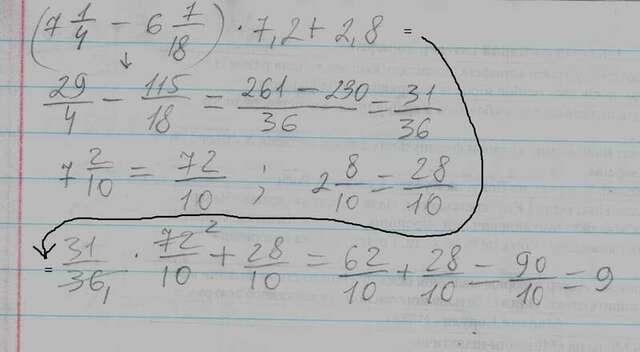 (7 1/4 − 6 7/18) · 7,2 + 2,8 =
29/4 − 115/18 = 261 − 230/36 = 31/36
7 2/10 = 72/10 ; 2 8/10 = 28/10
= 31/36 1 · 72 2/10 + 28/10 = 62/10 + 28/10 = 90/10 = 9